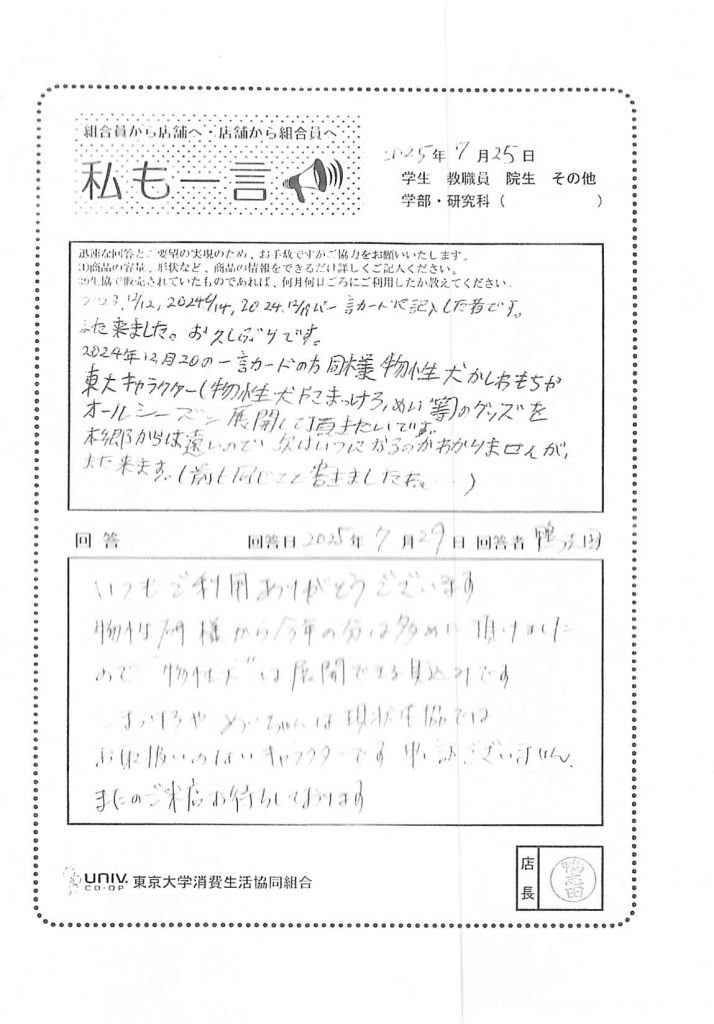 組合員から店舗へ・店舗から組合員へ
私も一言
2025年7月25日
学生 教職員 院生 その他
学部・研究科（ ）
迅速な回答とご要望の実現のため、お手数ですがご協力をお願いいたします。
①商品の容量、形状など、商品の情報をできるだけ詳しくご記入ください。
②生協で販売されていたものであれば、何月何日ごろにご利用したか教えてください。
2023,12/12, 2024 6/14, 2024.12/ 一言カードに記入した者です。
また来ました。お久しぶりです。
2024年12月20の一言カードの方同様 物性犬かしおもちが
東大キャラクター(物性犬 こまっけろ,めい等)のグッズを
オールシーズン展開して頂きたいです。
本郷からは遠いので次はいつになるのかわかりませんが、
また来ます。(前も同じこと書きましたね…)
回答 回答日 2025年7月29日 回答者 鴨志田
いつもご利用ありがとうございます
物性研様から今年の分は多めに頂けました
ので"物性犬"は展開できる見込みです
こまっけろやめいちゃんは現状生協では
お取扱いのないキャラクターです 申し訳ございません。
またのご来店お待ちしております
UNIV.
CO-OP 東京大学消費生活協同組合
店長
鴨志田